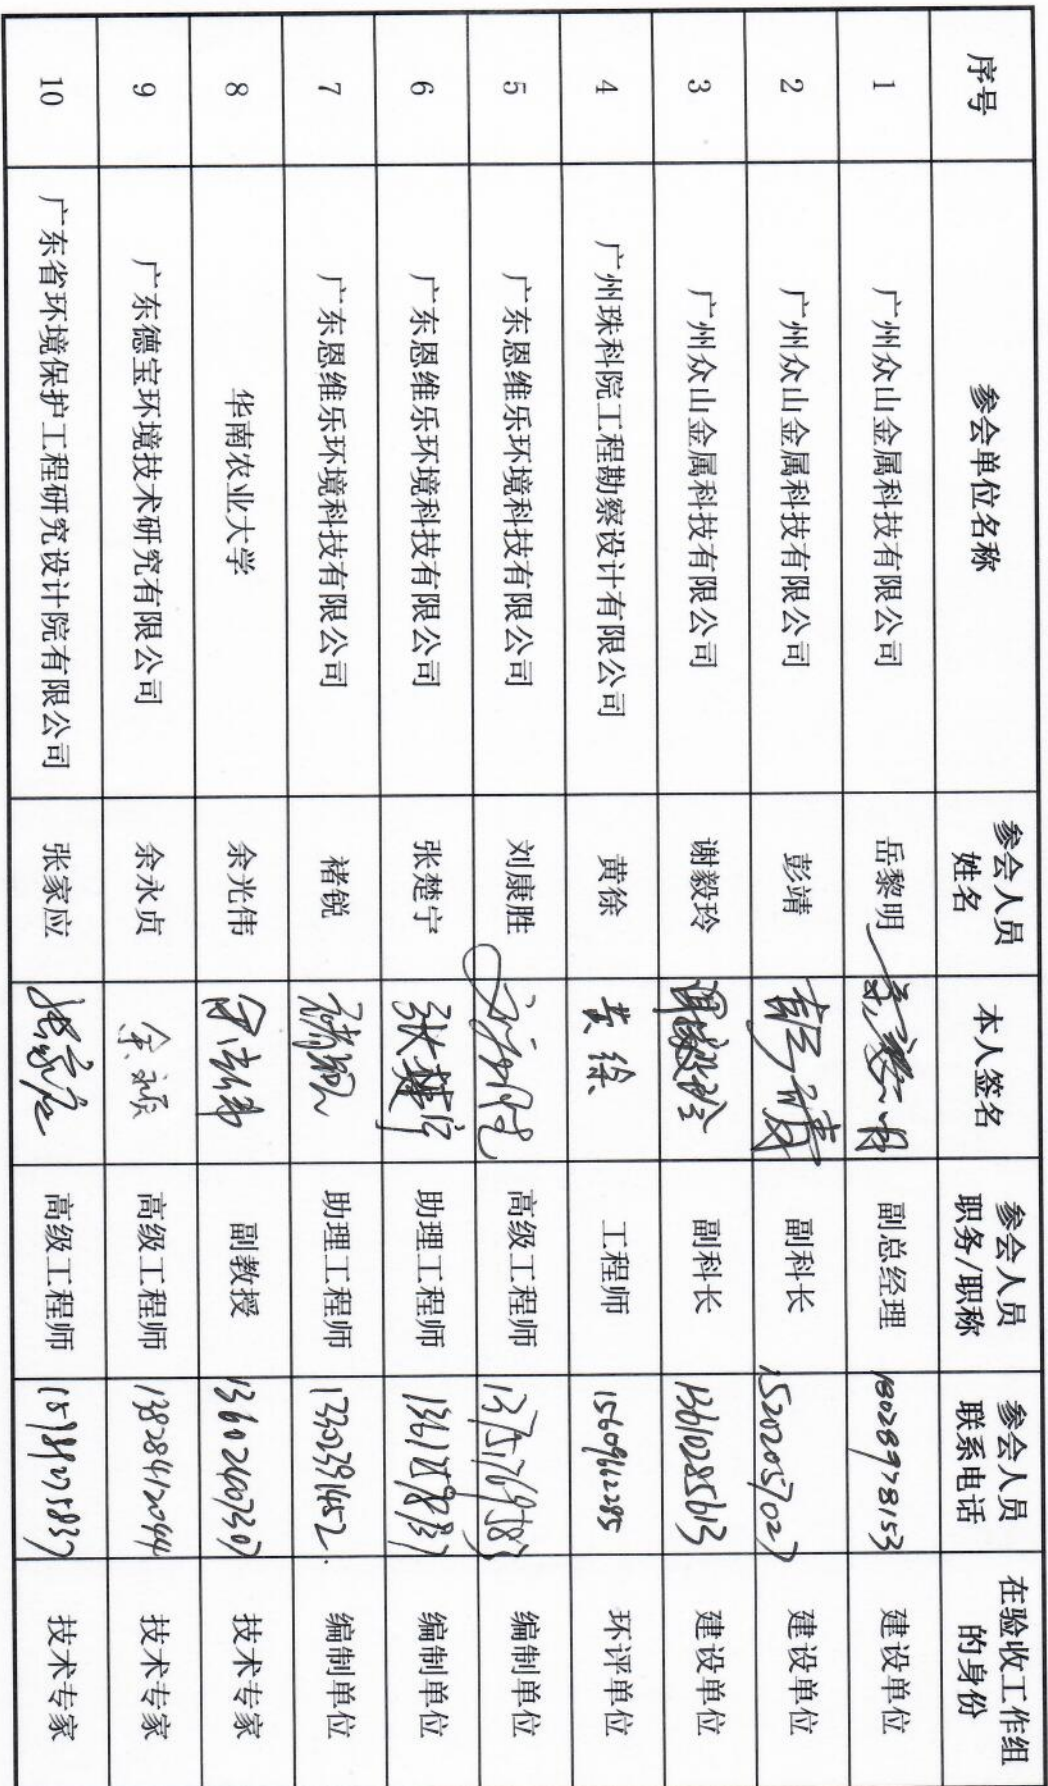 序号 参会单位名称 参会人员姓名 本人签名 参会人员职务/职称 参会人员联系电话 在验收工作组的身份
1 广州众山金属科技有限公司 岳黎明 岳黎明 副总经理 18028978153 建设单位
2 广州众山金属科技有限公司 彭靖 彭靖 副科长 15202057027 建设单位
3 广州众山金属科技有限公司 谢毅玲 谢毅玲 副科长 13610285613 建设单位
4 广州珠科院工程勘察设计有限公司 黄徐 黄徐 工程师 15609612285 环评单位
5 广东恩维乐环境科技有限公司 刘康胜 高级工程师 编制单位
6 广东恩维乐环境科技有限公司 张楚宁 张楚宁 助理工程师 编制单位
7 广东恩维乐环境科技有限公司 褚锐 褚锐 助理工程师 编制单位
8 华南农业大学 余光伟 余光伟 副教授 13602607307 技术专家
9 广东德宝环境技术研究有限公司 余永贞 高级工程师 13828412044 技术专家
10 广东省环境保护工程研究设计院有限公司 张家应 张家应 高级工程师 技术专家